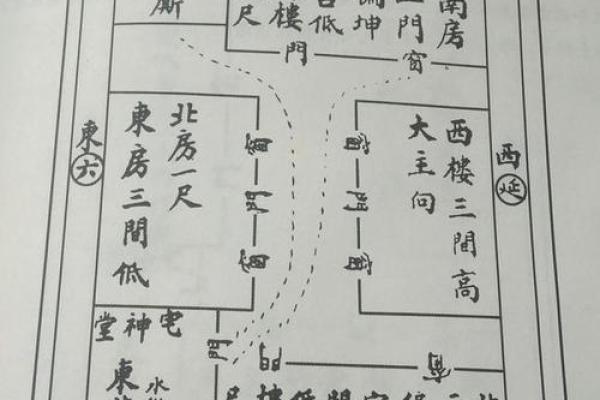 南房
門
坤
低
樓
尺
廁
門
窗
西延
西樓三間高
大主向
窗
門
窗
窗
門
窗
北房一尺
東房三間低
東六
宅神堂
門
門
窗
東
水